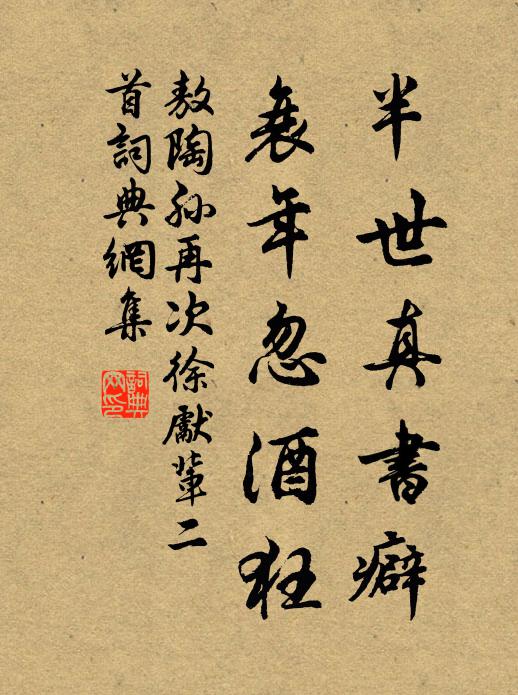 半世真書癖
衰年忽酒狂
敖陶孫再次徐獻輩二
首詞典網集
詞典網印